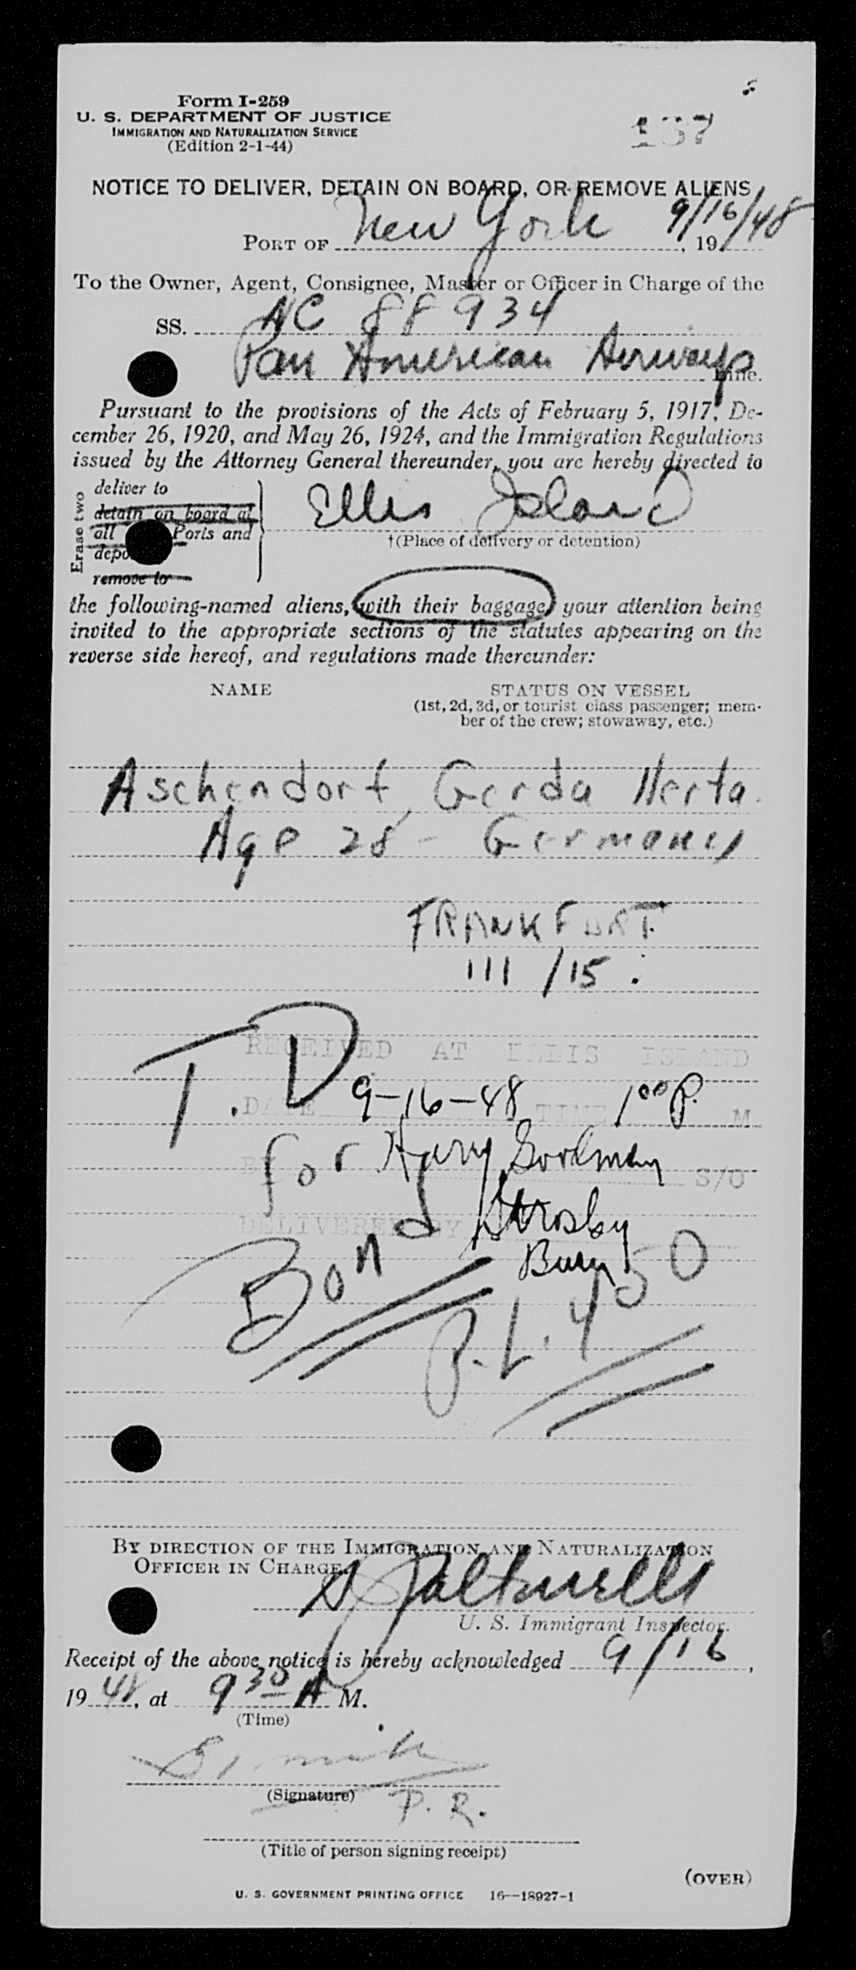 Form I-259
U. S. DEPARTMENT OF JUSTICE
IMMIGRATION AND NATURALIZATION SERVICE
(Edition 2-1-44)
137
NOTICE TO DELIVER, DETAIN ON BOARD, OR REMOVE ALIENS
PORT OF New York 9/16/48, 19
To the Owner, Agent, Consignee, Master or Officer in Charge of the
SS. NC 88934
Pan American Airways Line.
Pursuant to the provisions of the Acts of February 5, 1917, De-
cember 26, 1920, and May 26, 1924, and the Immigration Regulations
issued by the Attorney General thereunder, you are hereby directed to
Erase two
deliver to
detain on board at
all Ports and
remove to
Ellis Island
†(Place of delivery or detention)
the following-named aliens, with their baggage, your attention being
invited to the appropriate sections of the statutes appearing on the
reverse side hereof, and regulations made thereunder:
NAME STATUS ON VESSEL
(1st, 2d, 3d, or tourist class passenger; mem-
ber of the crew; stowaway, etc.)
Aschendorf, Gerda Herta
Age 28 - Germany
FRANKFURT
111/15.
T.D
RECEIVED AT ELLIS ISLAND
DATE 9-16-48 TIME 1 00 P. M
for Harry Goodman
BY S/O
DELIVERED BY
Bond
P.L. 450
BY DIRECTION OF THE IMMIGRATION AND NATURALIZATION
OFFICER IN CHARGE
U. S. Immigrant Inspector.
Receipt of the above notice is hereby acknowledged 9/16,
19 48, at 9 30 A M.
(Time)
(Signature)
P. R.
(Title of person signing receipt)
(OVER)
U. S. GOVERNMENT PRINTING OFFICE 16—18927-1